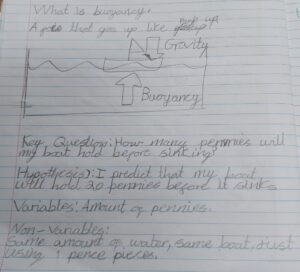 What is buoyancy.
A that gos up like pop up
Gravity
Buoyancy
Key Question: How many pennies will
my boat hold before sinking?
Hypothesis): I predict that my boat
will hold 20 pennies before it sinks
Variables: Amount of pennies.
Non-Variables:
Same amount of water, same boat, Just
using 1 pence pieces.